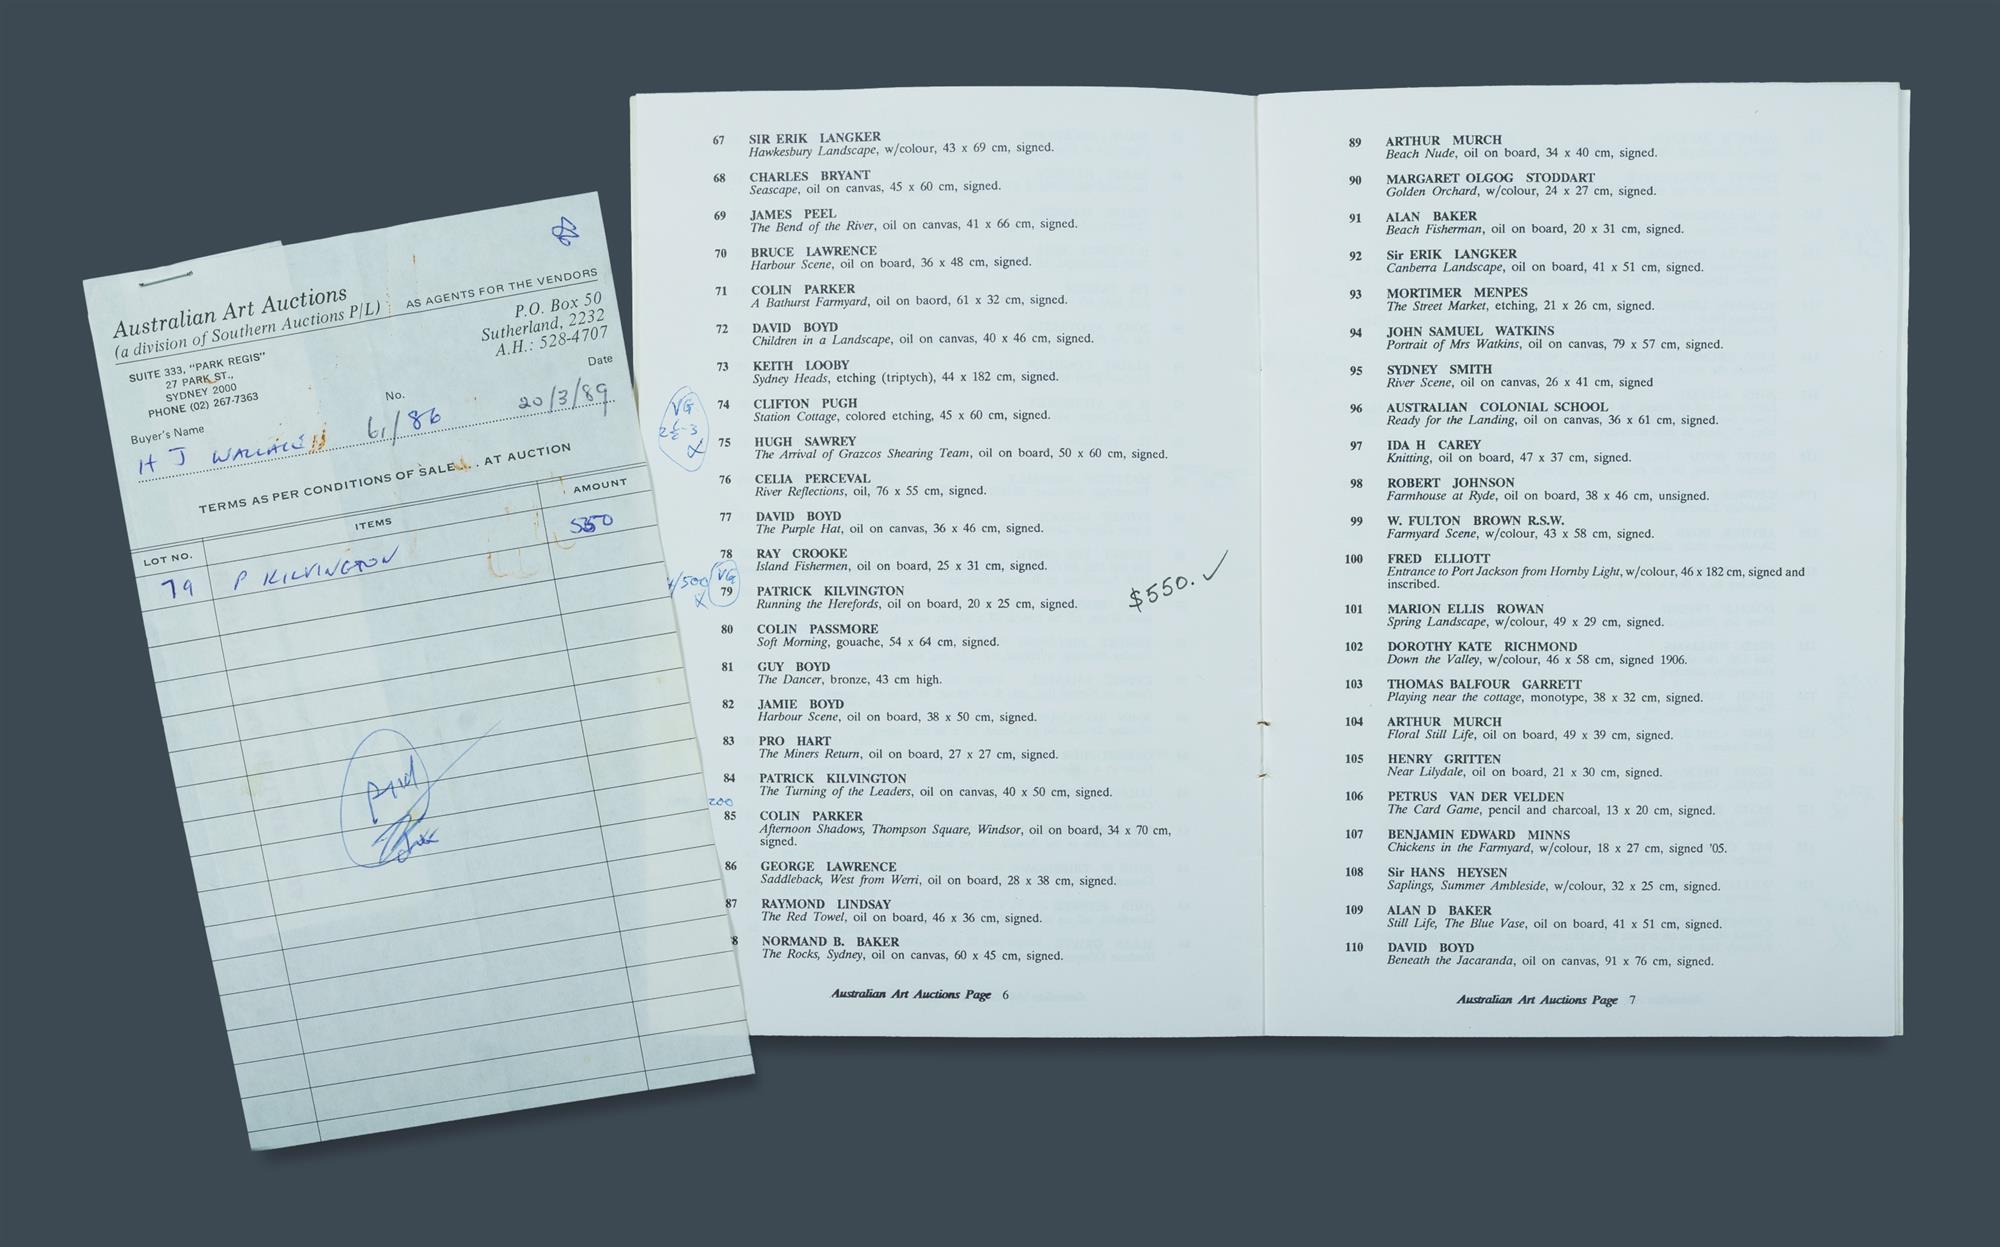 Australian Art Auctions
(a division of Southern Auctions P/L)
AS AGENTS FOR THE VENDORS
SUITE 333, "PARK REGIS"
27 PARK ST.,
SYDNEY 2000
PHONE (02) 267-7363
P.O. Box 50
Sutherland, 2232
A.H.: 528-4707
Buyer's Name
No.
Date
H J WALLACE
61/86
20/3/89
TERMS AS PER CONDITIONS OF SALE . . . AT AUCTION
LOT NO.
ITEMS
AMOUNT
79 P KILVINGTON
Paid
67 SIR ERIK LANGKER
Hawkesbury Landscape, w/colour, 43 x 69 cm, signed.
68 CHARLES BRYANT
Seascape, oil on canvas, 45 x 60 cm, signed.
69 JAMES PEEL
The Bend of the River, oil on canvas, 41 x 66 cm, signed.
70 BRUCE LAWRENCE
Harbour Scene, oil on board, 36 x 48 cm, signed.
71 COLIN PARKER
A Bathurst Farmyard, oil on baord, 61 x 32 cm, signed.
72 DAVID BOYD
Children in a Landscape, oil on canvas, 40 x 46 cm, signed.
73 KEITH LOOBY
Sydney Heads, etching (triptych), 44 x 182 cm, signed.
74 CLIFTON PUGH
Station Cottage, colored etching, 45 x 60 cm, signed.
VG
2½-3
75 HUGH SAWREY
The Arrival of Grazcos Shearing Team, oil on board, 50 x 60 cm, signed.
76 CELIA PERCEVAL
River Reflections, oil, 76 x 55 cm, signed.
77 DAVID BOYD
The Purple Hat, oil on canvas, 36 x 46 cm, signed.
78 RAY CROOKE
Island Fishermen, oil on board, 25 x 31 cm, signed.
/500 VG
79 PATRICK KILVINGTON
Running the Herefords, oil on board, 20 x 25 cm, signed.
$550. ✓
80 COLIN PASSMORE
Soft Morning, gouache, 54 x 64 cm, signed.
81 GUY BOYD
The Dancer, bronze, 43 cm high.
82 JAMIE BOYD
Harbour Scene, oil on board, 38 x 50 cm, signed.
83 PRO HART
The Miners Return, oil on board, 27 x 27 cm, signed.
84 PATRICK KILVINGTON
The Turning of the Leaders, oil on canvas, 40 x 50 cm, signed.
200
85 COLIN PARKER
Afternoon Shadows, Thompson Square, Windsor, oil on board, 34 x 70 cm,
signed.
86 GEORGE LAWRENCE
Saddleback, West from Werri, oil on board, 28 x 38 cm, signed.
87 RAYMOND LINDSAY
The Red Towel, oil on board, 46 x 36 cm, signed.
8 NORMAND B. BAKER
The Rocks, Sydney, oil on canvas, 60 x 45 cm, signed.
Australian Art Auctions Page 6
89 ARTHUR MURCH
Beach Nude, oil on board, 34 x 40 cm, signed.
90 MARGARET OLGOG STODDART
Golden Orchard, w/colour, 24 x 27 cm, signed.
91 ALAN BAKER
Beach Fisherman, oil on board, 20 x 31 cm, signed.
92 Sir ERIK LANGKER
Canberra Landscape, oil on board, 41 x 51 cm, signed.
93 MORTIMER MENPES
The Street Market, etching, 21 x 26 cm, signed.
94 JOHN SAMUEL WATKINS
Portrait of Mrs Watkins, oil on canvas, 79 x 57 cm, signed.
95 SYDNEY SMITH
River Scene, oil on canvas, 26 x 41 cm, signed
96 AUSTRALIAN COLONIAL SCHOOL
Ready for the Landing, oil on canvas, 36 x 61 cm, signed.
97 IDA H CAREY
Knitting, oil on board, 47 x 37 cm, signed.
98 ROBERT JOHNSON
Farmhouse at Ryde, oil on board, 38 x 46 cm, unsigned.
99 W. FULTON BROWN R.S.W.
Farmyard Scene, w/colour, 43 x 58 cm, signed.
100 FRED ELLIOTT
Entrance to Port Jackson from Hornby Light, w/colour, 46 x 182 cm, signed and
inscribed.
101 MARION ELLIS ROWAN
Spring Landscape, w/colour, 49 x 29 cm, signed.
102 DOROTHY KATE RICHMOND
Down the Valley, w/colour, 46 x 58 cm, signed 1906.
103 THOMAS BALFOUR GARRETT
Playing near the cottage, monotype, 38 x 32 cm, signed.
104 ARTHUR MURCH
Floral Still Life, oil on board, 49 x 39 cm, signed.
105 HENRY GRITTEN
Near Lilydale, oil on board, 21 x 30 cm, signed.
106 PETRUS VAN DER VELDEN
The Card Game, pencil and charcoal, 13 x 20 cm, signed.
107 BENJAMIN EDWARD MINNS
Chickens in the Farmyard, w/colour, 18 x 27 cm, signed '05.
108 Sir HANS HEYSEN
Saplings, Summer Ambleside, w/colour, 32 x 25 cm, signed.
109 ALAN D BAKER
Still Life, The Blue Vase, oil on board, 41 x 51 cm, signed.
110 DAVID BOYD
Beneath the Jacaranda, oil on canvas, 91 x 76 cm, signed.
Australian Art Auctions Page 7